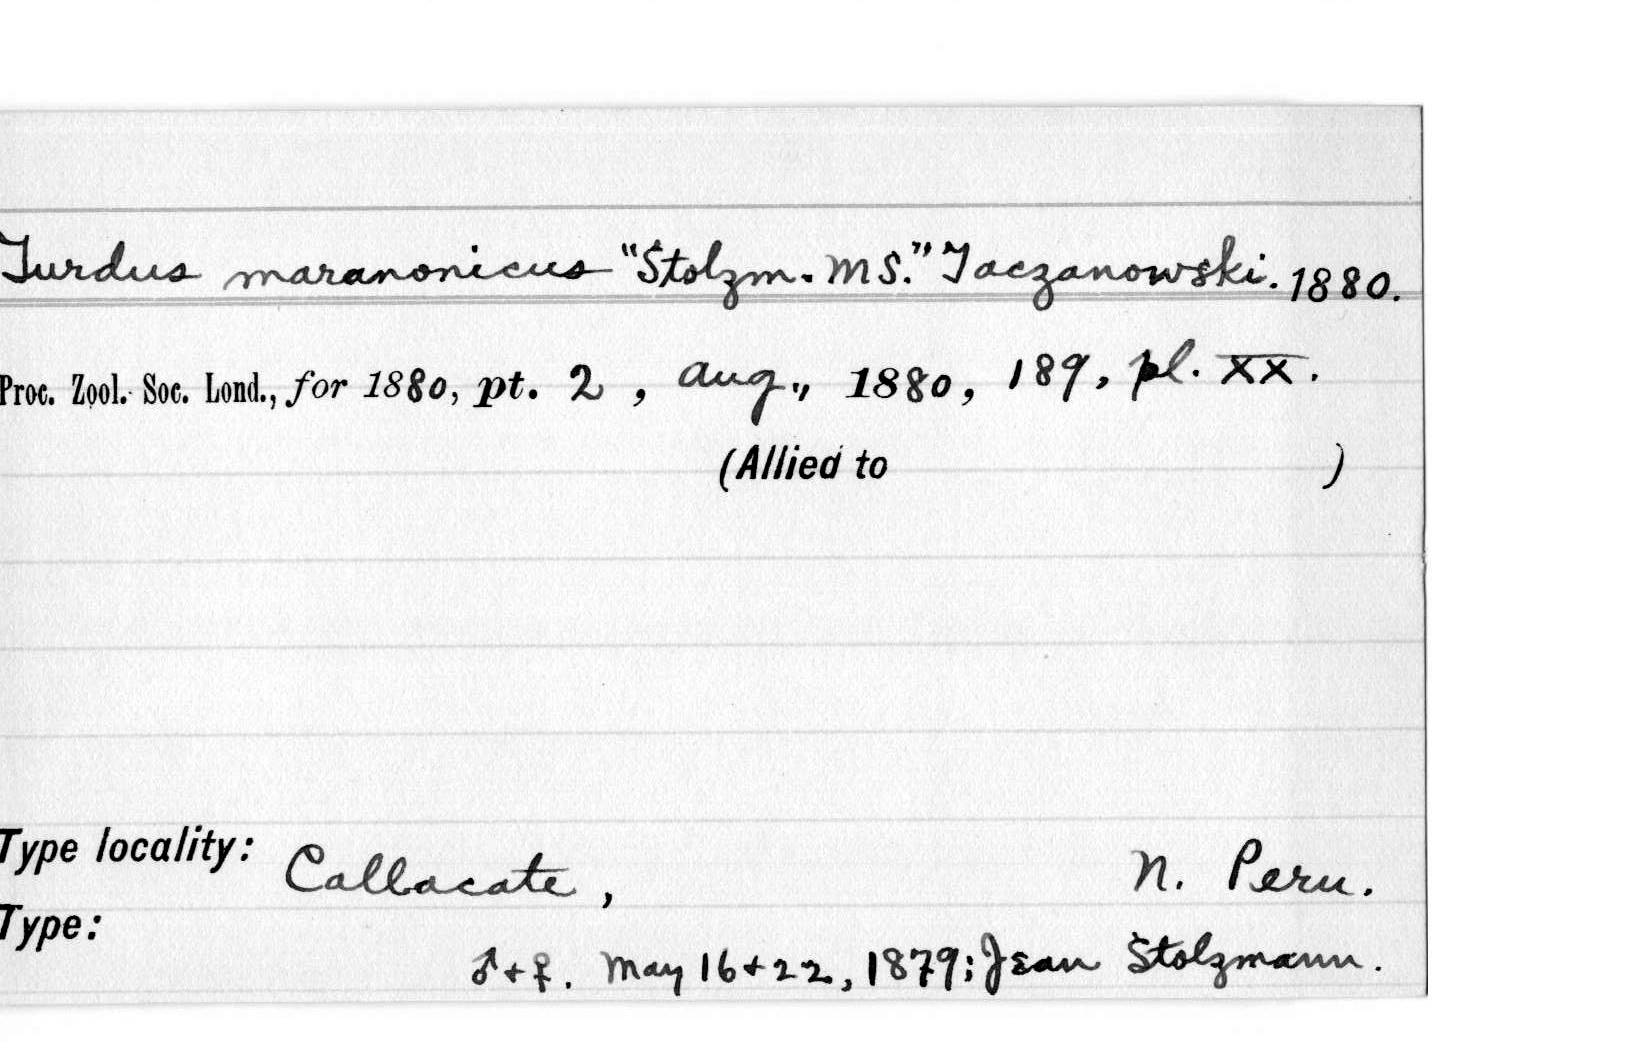 Turdus maranonicus "Stolzm. MS." Taczanowski. 1880.
Proc. Zool. Soc. Lond., for 1880, pt. 2, Aug., 1880, 189, pl. XX.
(Allied to )
Type locality: Callacate, N. Peru.
Type:
♂ + ♀. May 16 + 22, 1879; Jean Stolzmann.